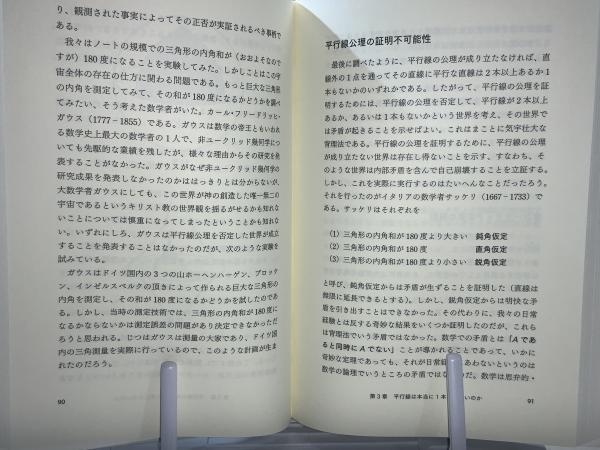 り、観測された事実によってその正否が実証されるべき事柄で
ある。
我々はノートの規模での三角形の内角和が（おおよそなので
すが）180度になることを実験してみた。しかしことはこの宇
宙全体の存在の仕方に関わる問題である。もっと巨大な三角形
の内角を測定してみて、その和が180度になるかどうかを調べ
てみたい、そう考えた数学者がいた。カール・フリードリッヒ・
ガウス（1777－1855）である。ガウスは数学の帝王ともいわれ
る数学史上最大の数学者の1人で、非ユークリッド幾何学につ
いても先駆的な業績を残したが、様々な理由からその研究を発
表することがなかった。ガウスがなぜ非ユークリッド幾何学の
研究成果を発表しなかったのかははっきりとは分からないが、
大数学者ガウスにしても、この世界が神の創造した唯一無二の
宇宙であるというキリスト教の世界観を揺るがせるかも知れな
いことについては慎重になってしまったということかも知れな
い。いずれにしろ、ガウスは平行線公理を否定した世界が成立
することを発表することはなかったのだが、次のような実験を
試みている。
ガウスはドイツ国内の3つの山ホーヘンハーゲン、ブロッケ
ン、インゼルスベルクの頂きによって作られる巨大な三角形の
内角を測定し、その和が180度になるかどうかを試したのであ
る。しかし、当時の測定技術では、三角形の内角和が180度に
なるかならないかは測定誤差の問題があり決定できなかっただ
ろうと思われる。じつはガウスは測量の大家であり、ドイツ国
内の三角測量を実際に行っているので、このような計画が生ま
れたのだろう。
90
平行線公理の証明不可能性
最後に調べたように、平行線の公理が成り立たなければ、直
線外の1点を通ってその直線に平行な直線は2本以上あるか1
本もないかのいずれかである。したがって、平行線の公理を証
明するためには、平行線の公理を否定して、平行線が2本以上
あるか、あるいは1本もないかという世界を考え、その世界で
は矛盾が起きることを示せばよい。これはまことに気宇壮大な
背理法である。平行線の公理を証明するために、平行線の公理
が成り立たない世界は存在し得ないことを示す、すなわち、そ
のような世界は内部矛盾を含んで自己崩壊することを立証する。
しかし、これを実際に実行するのはたいへんなことだったろう。
それを行ったのがイタリアの数学者サッケリ（1667－1733）で
ある。サッケリはそれぞれを
（1）三角形の内角和が180度より大きい　鈍角仮定
（2）三角形の内角和が180度　直角仮定
（3）三角形の内角和が180度より小さい　鋭角仮定
と呼び、鈍角仮定からは矛盾が生ずることを証明した（直線は
無限に延長できるとする）。しかし、鋭角仮定からは明快な矛
盾を引き出すことはできなかった。その代わりに、我々の日常
経験とは反する奇妙な結果をいくつか証明したのだが、これら
は背理法でいう矛盾ではなかった。数学での矛盾とは「Aであ
ると同時にAでない」ことが導かれることであって、いかに
奇妙な定理であっても、それが日常経験にあわないというのは
数学の論理でいうところの矛盾ではないのだ。数学は思弁的・
第3章　平行線は本当に1本しかないのか
91